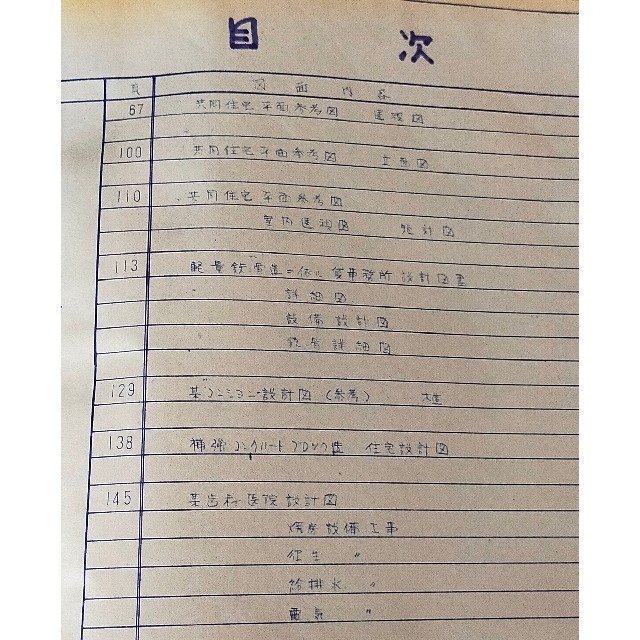 目次
頁 図面内容
67 共同住宅平面参考図 透視図
100 共同住宅平面参考図 立面図
110 共同住宅平面参考図
室内透視図 設計図
113 軽量鉄骨造ニ依ル貸事務所設計図書
詳細図
設備設計図
鉄骨詳細図
129 某マンション設計図(参考) 木造
138 補強コンクリートブロック造 住宅設計図
145 某歯科医院設計図
煖房設備工事
衛生 〃
給排水 〃
電気 〃